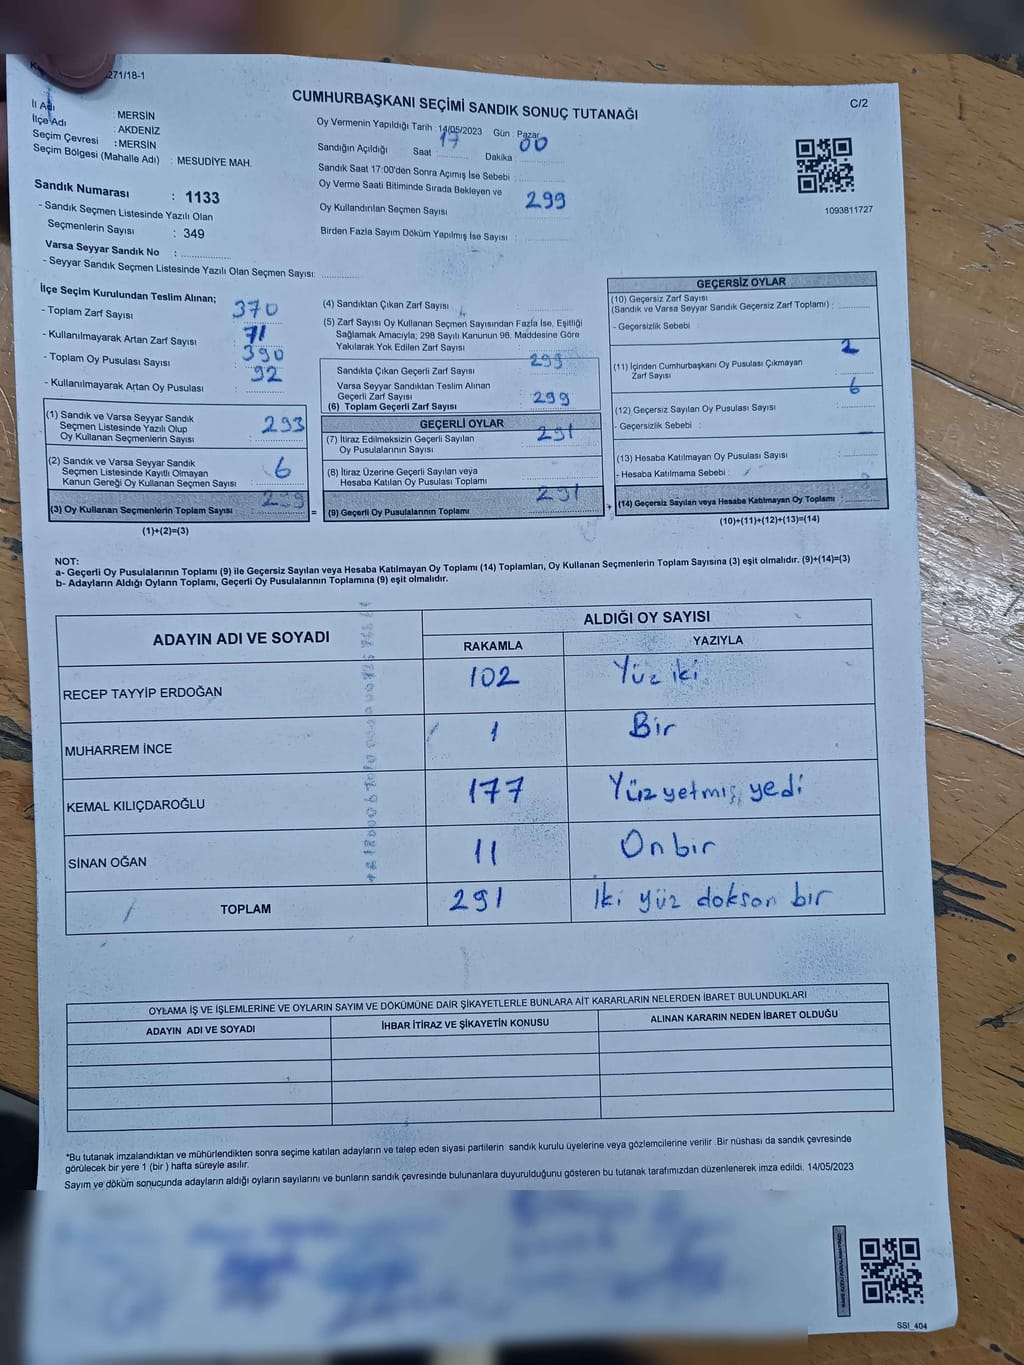 271/18-1
CUMHURBAŞKANI SEÇİMİ SANDIK SONUÇ TUTANAĞI
C/2
İl Adı : MERSİN
İlçe Adı : AKDENİZ
Seçim Çevresi : MERSİN
Seçim Bölgesi (Mahalle Adı) : MESUDİYE MAH.
Oy Vermenin Yapıldığı Tarih : 14/05/2023 Gün : Pazar
Sandığın Açıldığı Saat 17 Dakika 00
Sandık Saat 17:00'den Sonra Açımış İse Sebebi :
Oy Verme Saati Bitiminde Sırada Bekleyen ve
Oy Kullandırılan Seçmen Sayısı 299
Birden Fazla Sayım Döküm Yapılmış İse Sayısı :
1093811727
Sandık Numarası : 1133
- Sandık Seçmen Listesinde Yazılı Olan
Seçmenlerin Sayısı : 349
Varsa Seyyar Sandık No :
- Seyyar Sandık Seçmen Listesinde Yazılı Olan Seçmen Sayısı:
İlçe Seçim Kurulundan Teslim Alınan;
- Toplam Zarf Sayısı : 370
- Kullanılmayarak Artan Zarf Sayısı : 71
- Toplam Oy Pusulası Sayısı : 390
- Kullanılmayarak Artan Oy Pusulası : 92
(1) Sandık ve Varsa Seyyar Sandık
Seçmen Listesinde Yazılı Olup
Oy Kullanan Seçmenlerin Sayısı : 293
(2) Sandık ve Varsa Seyyar Sandık
Seçmen Listesinde Kayıtlı Olmayan
Kanun Gereği Oy Kullanan Seçmen Sayısı : 6
(3) Oy Kullanan Seçmenlerin Toplam Sayısı : 299
(1)+(2)=(3)
(4) Sandıktan Çıkan Zarf Sayısı :
(5) Zarf Sayısı Oy Kullanan Seçmen Sayısından Fazla İse, Eşitliği
Sağlamak Amacıyla; 298 Sayılı Kanunun 98. Maddesine Göre
Yakılarak Yok Edilen Zarf Sayısı
Sandıkta Çıkan Geçerli Zarf Sayısı : 299
Varsa Seyyar Sandıktan Teslim Alınan
Geçerli Zarf Sayısı
(6) Toplam Geçerli Zarf Sayısı : 299
GEÇERLİ OYLAR
(7) İtiraz Edilmeksizin Geçerli Sayılan
Oy Pusulalarının Sayısı : 291
(8) İtiraz Üzerine Geçerli Sayılan veya
Hesaba Katılan Oy Pusulası Toplamı
= (9) Geçerli Oy Pusulalarının Toplamı 291
GEÇERSİZ OYLAR
(10) Geçersiz Zarf Sayısı
(Sandık ve Varsa Seyyar Sandık Geçersiz Zarf Toplamı) :
- Geçersizlik Sebebi
(11) İçinden Cumhurbaşkanı Oy Pusulası Çıkmayan
Zarf Sayısı 2
(12) Geçersiz Sayılan Oy Pusulası Sayısı : 6
- Geçersizlik Sebebi :
(13) Hesaba Katılmayan Oy Pusulası Sayısı :
- Hesaba Katılmama Sebebi :
+ (14) Geçersiz Sayılan veya Hesaba Katılmayan Oy Toplamı :
(10)+(11)+(12)+(13)=(14)
NOT:
a- Geçerli Oy Pusulalarının Toplamı (9) ile Geçersiz Sayılan veya Hesaba Katılmayan Oy Toplamı (14) Toplamları, Oy Kullanan Seçmenlerin Toplam Sayısına (3) eşit olmalıdır. (9)+(14)=(3)
b- Adayların Aldığı Oyların Toplamı, Geçerli Oy Pusulalarının Toplamına (9) eşit olmalıdır.
ADAYIN ADI VE SOYADI
ALDIĞI OY SAYISI
RAKAMLA YAZIYLA
RECEP TAYYİP ERDOĞAN 102 Yüz iki
MUHARREM İNCE 1 Bir
KEMAL KILIÇDAROĞLU 177 Yüz yetmiş yedi
SİNAN OĞAN 11 On bir
TOPLAM 291 İki yüz dokson bir
OYLAMA İŞ VE İŞLEMLERİNE VE OYLARIN SAYIM VE DÖKÜMÜNE DAİR ŞİKAYETLERLE BUNLARA AİT KARARLARIN NELERDEN İBARET BULUNDUKLARI
ADAYIN ADI VE SOYADI İHBAR İTİRAZ VE ŞİKAYETİN KONUSU ALINAN KARARIN NEDEN İBARET OLDUĞU
*Bu tutanak imzalandıktan ve mühürlendikten sonra seçime katılan adayların ve talep eden siyasi partilerin sandık kurulu üyelerine veya gözlemcilerine verilir .Bir nüshası da sandık çevresinde
görülecek bir yere 1 (bir ) hafta süreyle asılır.
Sayım ve döküm sonucunda adayların aldığı oyların sayılarını ve bunların sandık çevresinde bulunanlara duyurulduğunu gösteren bu tutanak tarafımızdan düzenlenerek imza edildi. 14/05/2023
SSI_404